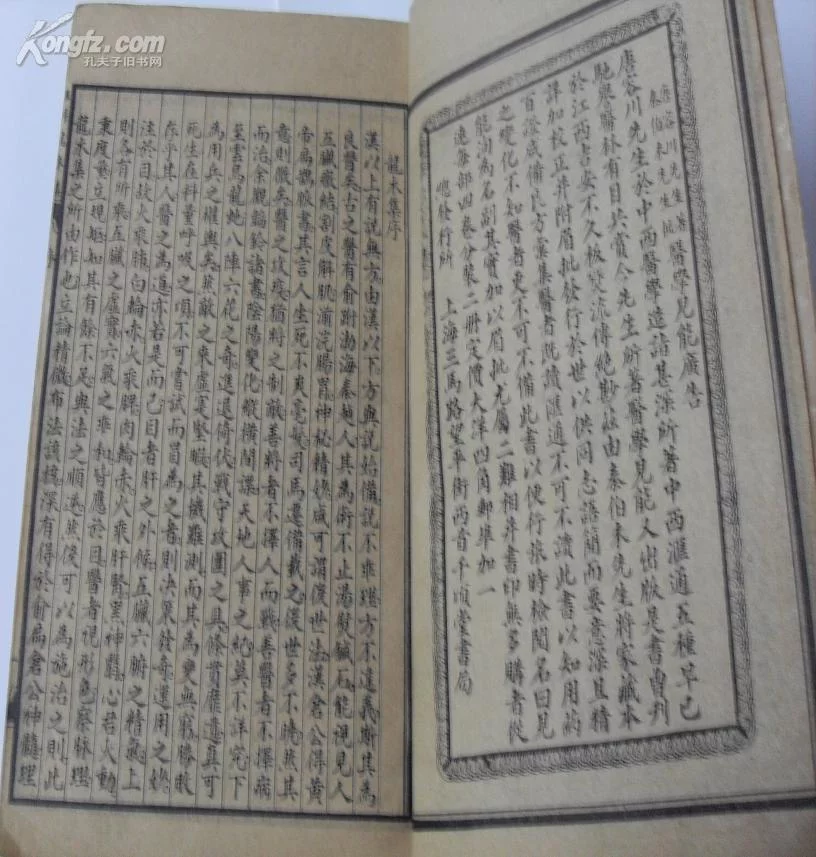 Kongfz.com
孔夫子旧书网
唐容川先生著
秦伯未先生批
醫學見能廣告
唐容川先生於中西醫學造詣甚深所著中西滙通五種早已
馳譽醫林有目共賞今先生所著醫學見能又出版是書曾刊
於江西吉安不久板燬流傳絕尠茲由秦伯未先生將家藏本
詳加校正并附眉批發行於世以供同志語簡而要意深且精
百證咸備良方彙集醫者既讀滙通不可不讀此書以知用藥
之變化不知醫者更不可不備此書以便行旅時檢閱名曰見
能洵為名副其實加以眉批尤屬二難相并書印無多購者從
速每部四卷分裝二册定價大洋四角郵費加一
總發行所 上海三馬路望平街西首千頃堂書局
龍木集序
漢以上有說無方由漢以下方與說始備說不乖理方不違義斯其為
良醫矣古之醫有俞跗渤海秦越人其為術不止湯熨鍼石能視見人
五臟癥結割皮解肌湔浣腸胃神秘精妙咸可謂後世法漢倉公得黃
帝扁鵲脈書其言人生死不爽毫髮司馬遷備載之後世多不曉然其
意則微矣醫之攻疾猶將之制敵善將者不擇人而戰善醫者不擇病
而治余觀韜鈐諸書陰陽變化縱横間諜天地人事之紀莫不詳究下
至雲鳥龍蛇八陣六花之奇進退倚伏戰守攻圍之具條貫靡遺真可
為用兵之權輿矣然敵之來虛寔堅瑕其機難測而其為變無窮勝敗
死生在料量呼吸之頃不可嘗試而冒為之者則決策發奇運用之妙
存乎其人醫之為道亦若是而已目者肝之外候五臟六腑之精氣上
注於目故火乘肺白輪赤火乘脾肉輪赤火乘肝腎黑神翳心君火動
則各有所乘五臟之虛實六氣之乖和皆應於目醫者視形色察脉理
秉度數立規矩知其有餘不足與法之順逆然後可以為施治之則此
龍木集之所由作也立論精微布法該核深有得於俞扁倉公神髓理